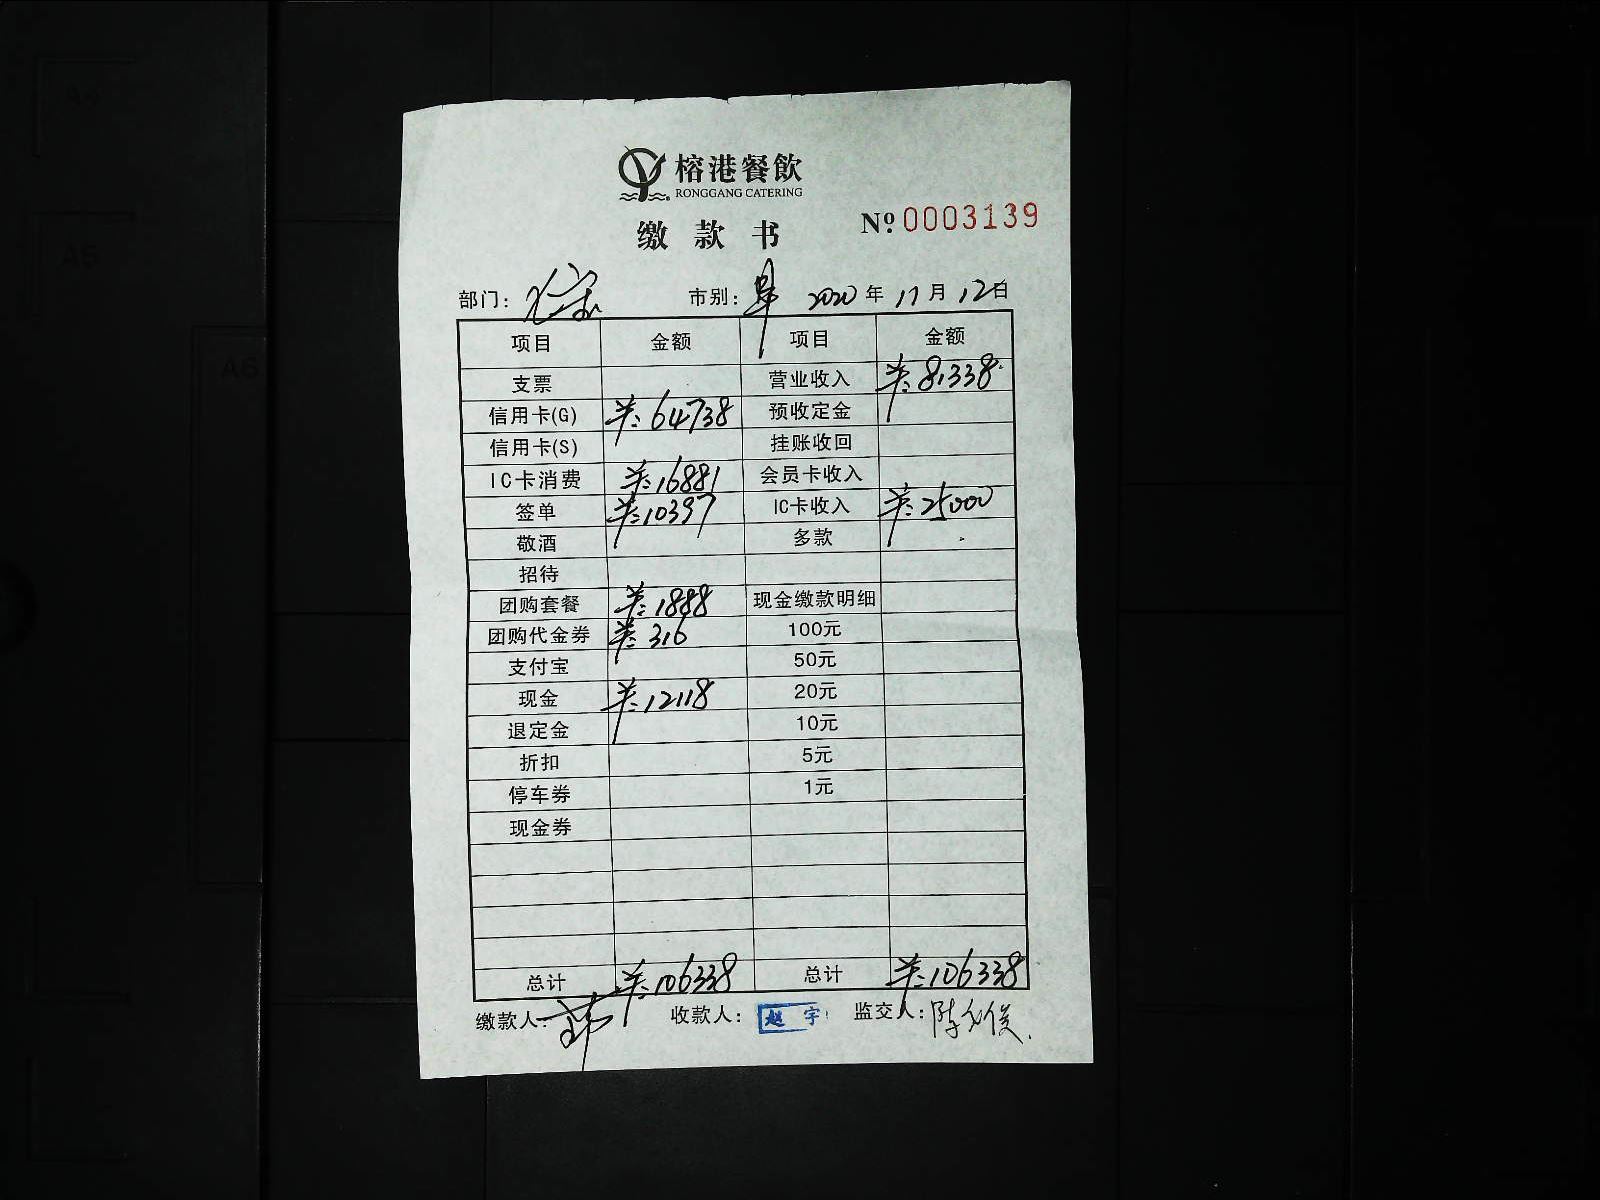 榕港餐飲
RONGGANG CATERING
缴款书
№ 0003139
部门: 市别: 2020 年 11 月 12 日
项目 金额 项目 金额
支票 营业收入 ¥:81338
信用卡(G) ¥:64738 预收定金
信用卡(S) 挂账收回
IC卡消费 ¥:16881 会员卡收入
签单 ¥:10397 IC卡收入 ¥:25000
敬酒 多款
招待
团购套餐 ¥:1888 现金缴款明细
团购代金券 ¥:316 100元
支付宝 50元
现金 ¥:12118 20元
退定金 10元
折扣 5元
停车券 1元
现金券
总计 ¥:106338 总计 ¥:106338
缴款人: 收款人: 赵宇 监交人:
A6
A5